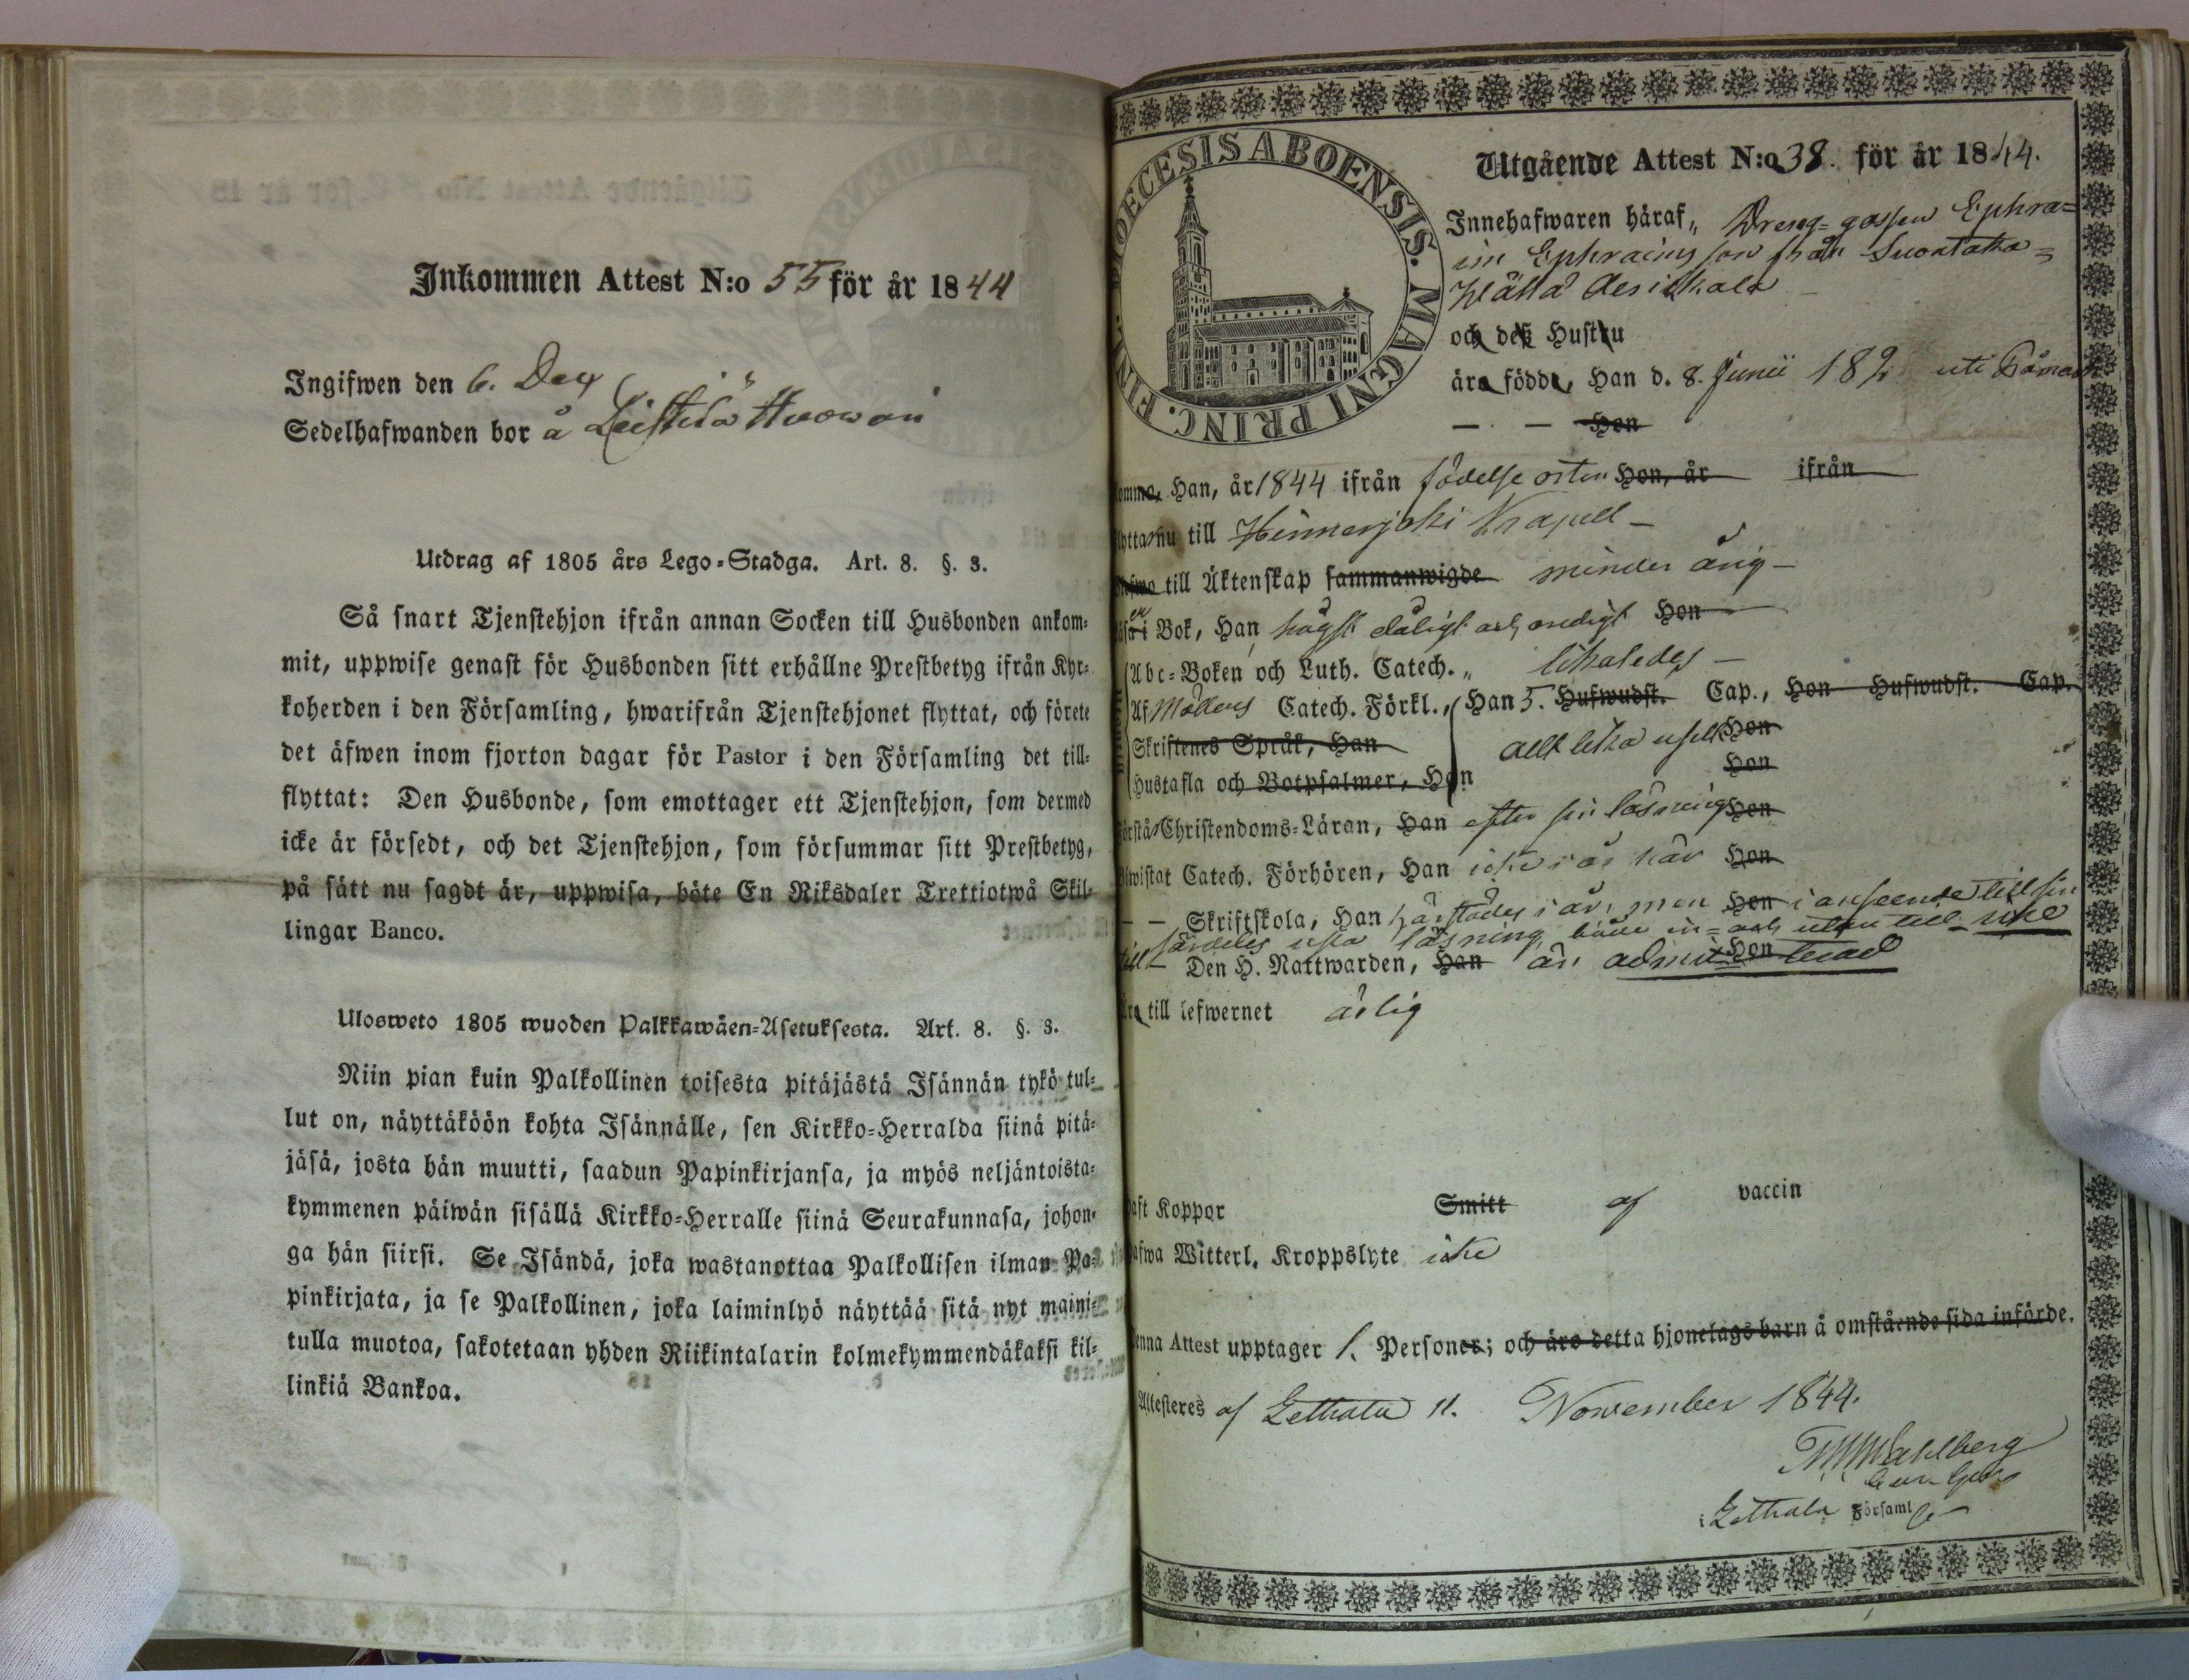 Inkommen Attest N:o 55 för år 1844
Ingifwen den 6. Dec
Sedelhafwanden bor å
Utdrag af 1805 års Lego-Stadga. Art. 8. §. 3.
Så snart Tjenstehjon ifrån annan Socken till Husbonden ankom-
mit, uppwise genast för Husbonden sitt erhållne Prestbetyg ifrån Kyr-
koherden i den Församling, hwarifrån Tjenstehjonet flyttat, och förete
det äfwen inom fjorton dagar för Pastor i den Församling det till-
flyttat: Den Husbonde, som emottager ett Tjenstehjon, som dermed
icke är försedt, och det Tjenstehjon, som försummar sitt Prestbetyg,
på sätt nu sagdt är, uppwisa, böte En Riksdaler Trettiotwå Skil-
lingar Banco.
Ulosweto 1805 wuoden Palkkawäen-Asetuksesta. Art. 8. §. 3.
Niin pian kuin Palkollinen toisesta pitäjästä Isännän tykö tul-
lut on, näyttäköön kohta Isännälle, sen Kirkko-Herralda siinä pitä-
jäsä, josta hän muutti, saadun Papinkirjansa, ja myös neljäntoista-
kymmenen päiwän sisällä Kirkko-Herralle siinä Seurakunnasa, johon-
ga hän siirsi. Se Isändä, joka wastanottaa Palkollisen ilman Pa-
pinkirjata, ja se Palkollinen, joka laiminlyö näyttää sitä nyt maini-
tulla muotoa, sakotetaan yhden Riikintalarin kolmekymmendäkaksi kil-
linkiä Bankoa.
DIOECESIS ABOENSIS. MAGNI PRINC. FINL.
Utgående Attest N:o 38. för år 1844.
Innehafwaren häraf, Dreng-gossen Ephra-
im Ephraimsson från Suontaka-
och deß Hustru
äro födde, Han d. 8. Junii 182 uti
— — Hon
komma, Han, år 1844 ifrån födelse orten Hon, år ifrån
flytta nu till Hinnerjoki Kapell —
till Äktenskap sammanwigde minder årig —
i Bok, Han högst dåligt och oredigt Hon
Abc-Boken och Luth. Catech. „ likaledes —
Af Möllers Catech. Förkl., Han 5. Hufwudst. Cap., Hon Hufwudst. Cap.
Skriftenes Språk, Han allt lika uselt Hon
Hustafla och Botpsalmer, Han Hon
förstår Christendoms-Läran, Han efter sin läsning Hon
biwistat Catech. Förhören, Han icke i år här Hon
— — Skriftskola, Han härstädes i år, men Hon i anseende till sin
särdeles usla läsning, både in- och utan till icke
till — Den H. Nattwarden, Han än admitterad Hon
äro till lefwernet ärlig
haft Koppor Smitt af vaccin
hafwa Witterl. Kroppslyte icke
Denna Attest upptager 1. Personer; och äro detta hjonelags barn å omstående sida införde.
Attesteres af Lethala 11. November 1844.
Wahlberg
i Lethala Församl